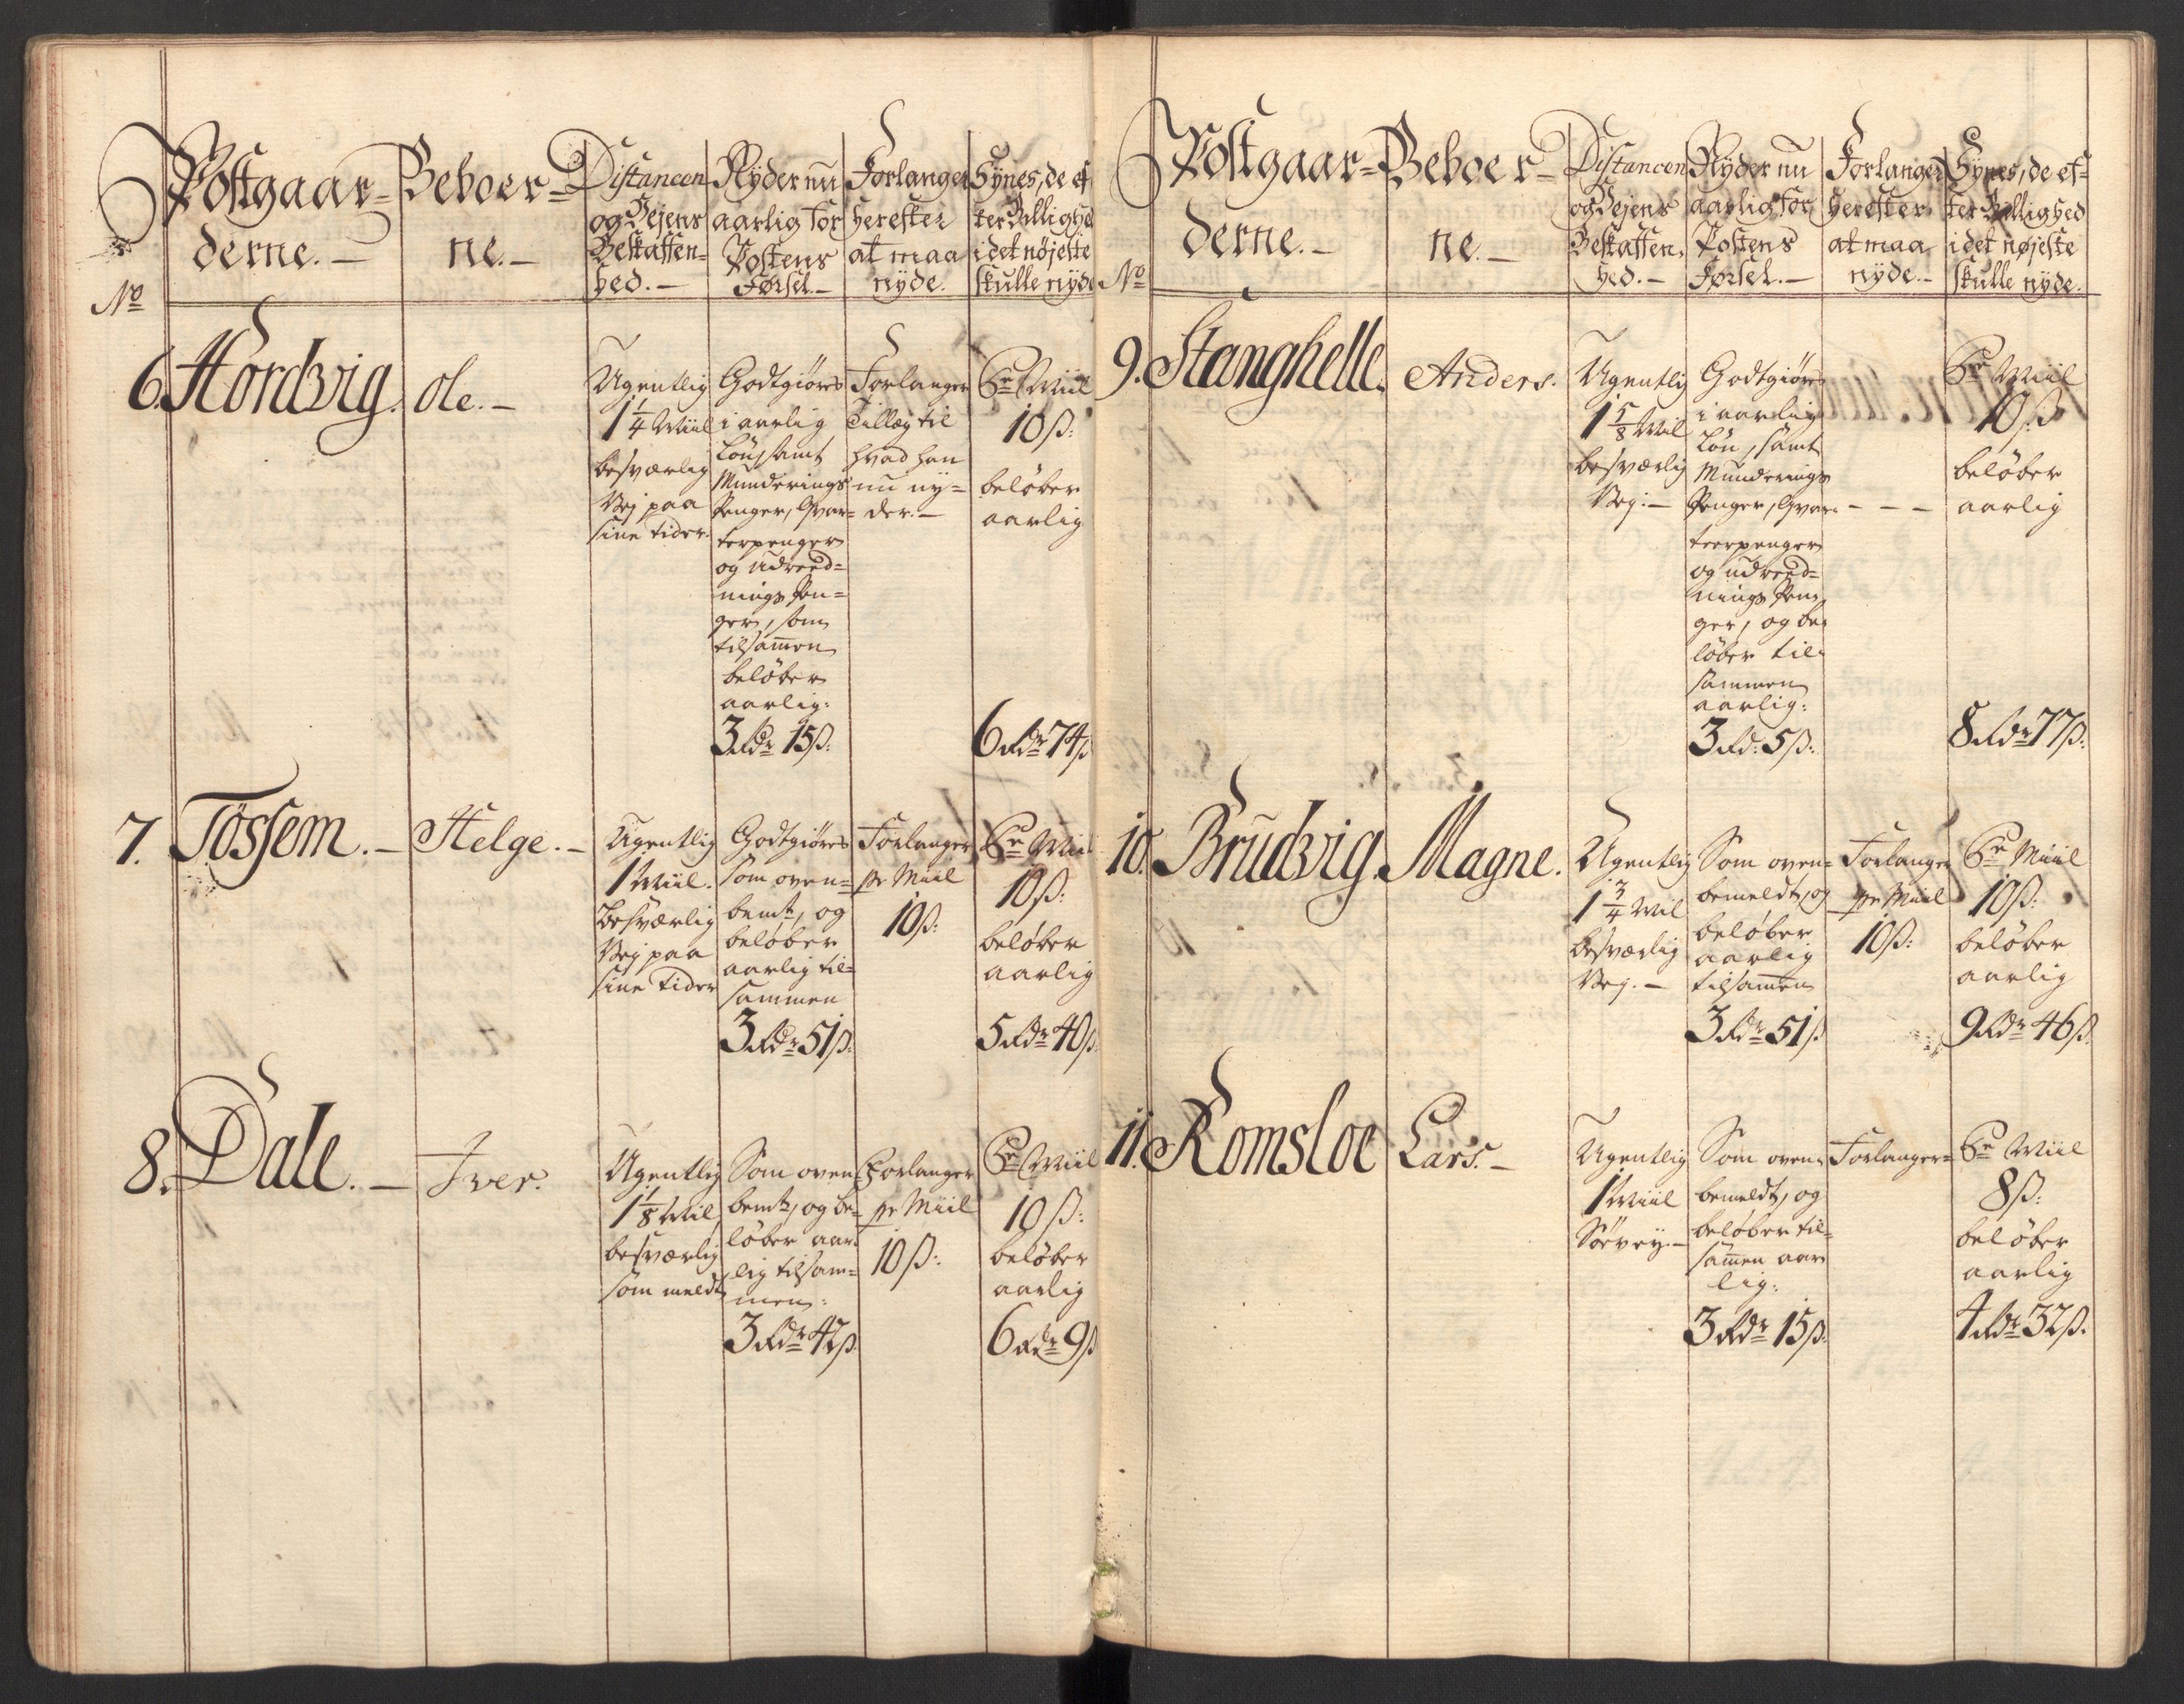 Postgaar=
derne. —
Beboer=
ne. —
Distancen
og Vejens
Beskaffen=
hed. —
Nyder nu
aarlig for
Postens
Førsel. —
Forlanger
herefter
at maa
nyde.
Synes, de ef
ter Billighed
i det nøjeste
skulle nyde
No
6. Hordvig.
Ole. —
Ugentlig
1 1/4 Miil
besværlig
Vej paa
sine tider.
Godtgiøres
i aarlig
Løn, samt
Munderings
Penger, Qvar=
terpenger
og Udreed=
nings Pen=
ger, som
tilsamen
beløber
aarlig:
3 Rdr 15 ß:
Forlanger
Tillæg til
hvad han
nu ny=
der. —
Pr Miil
10 ß:
beløber
aarlig
6 Rdr 74 ß
7. Tøssem. —
Helge. —
Ugentlig
1 Miil.
Besværlig
Vej paa
sine Tider
Godtgiøres
som oven=
bemte, og
beløber
aarlig til=
sammen
3 Rdr 51 ß:
Forlanger
pr Miil
10 ß:
Pr Miil
10 ß:
beløber
aarlig
5 Rdr 40 ß.
8. Dale. —
Iver.
Ugentlig
1 1/8 Miil
besværlig
som meldt
Som oven
bemte, og be=
løber aar=
lig tilsam=
men:
3 Rdr 42 ß
Forlanger
pr Miil
10 ß:
Pr Miil
10 ß:
beløber
aarlig
6 Rdr 9 ß
Postgaar=
derne. —
Beboer=
ne. —
Distancen
og Vejens
Beskaffen=
hed. —
Nyder nu
aarlig for
Postens
Førsel. —
Forlanger
herefter
at maa
nyde. —
Synes, de ef=
ter Billighed
i det nøjeste
skulle nyde.
No
9. Stanghelle.
Anders.
Ugentlig
1 5/8 Mil
besværlig
Vej: —
Godtgiøres
i aarlig
Løn, samt
Munderings
Penger, Qvar=
teerpenger
og udreed=
nings Pen=
ger, og be=
løber til=
sammen
aarlig:
3 Rd: 5 ß:
— — —
Pr Miil
10 ß
beløber
aarlig
8 Rdr 77 ß:
10. Brudvig.
Magne.
Ugentlig
1 3/4 Mil
besværlig
Vej. —
Som oven=
bemeldt, og
beløber
aarlig
tilsamen
3 Rdr 51 ß
Forlanger
pr Miil
10 ß:
Pr Miil
10 ß:
beløber
aarlig
9 Rdr 46 ß.
11. Romsloe
Lars. —
Ugentlig
1 Miil
Søevey. —
Som oven=
bemeldt, og
beløber til=
samen aar
lig:
3 Rdr 15 ß:
Forlanger=
Pr Miil
8 ß:
beløber
aarlig
4 Rdr 32 ß.